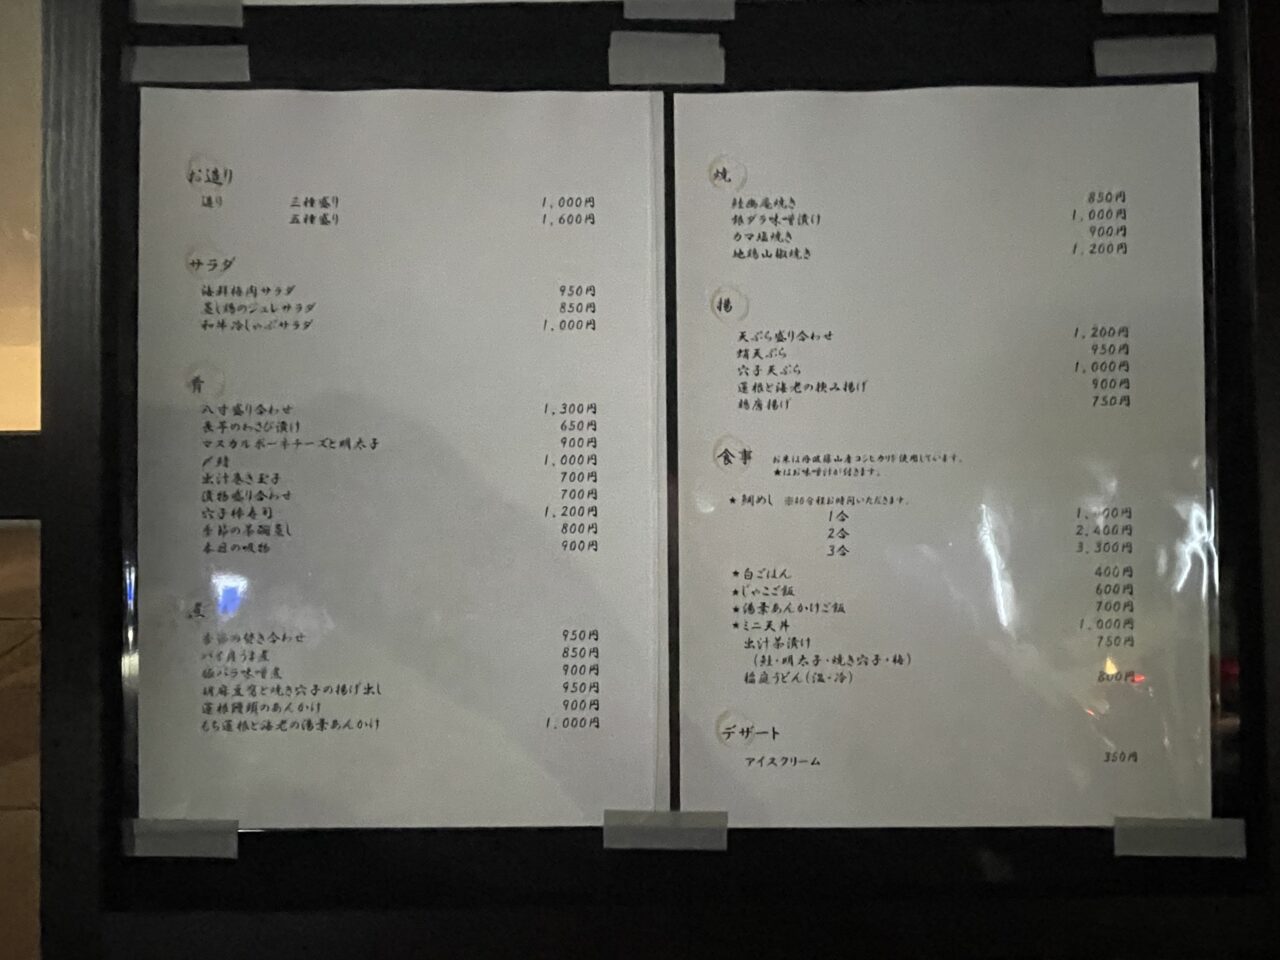 お造り
造り 三種盛り 1,000円
五種盛り 1,600円
サラダ
海鮮梅肉サラダ 950円
蒸し鶏のジュレサラダ 850円
和牛冷しゃぶサラダ 1,000円
肴
八寸盛り合わせ 1,300円
長芋のわさび漬け 650円
マスカルポーネチーズと明太子 900円
〆鯖 1,000円
出汁巻き玉子 700円
漬物盛り合わせ 700円
穴子棒寿司 1,200円
季節の茶碗蒸し 800円
本日の吸物 900円
煮
季節の焚き合わせ 950円
バイ貝うま煮 850円
豚バラ味噌煮 900円
胡麻豆腐と焼き穴子の揚げ出し 950円
蓮根饅頭のあんかけ 900円
もち蓮根と海老の湯葉あんかけ 1,000円
焼
鮭幽庵焼き 850円
銀ダラ味噌漬け 1,000円
カマ塩焼き 900円
地鶏山椒焼き 1,200円
揚
天ぷら盛り合わせ 1,200円
蛸天ぷら 950円
穴子天ぷら 1,000円
蓮根と海老の挟み揚げ 900円
鶏唐揚げ 750円
食事 お米は丹波篠山産コシヒカリを使用しています。
★はお味噌汁が付きます。
★鯛めし ※40分程お時間いただきます。
1合
2合 2,400円
3合 3,300円
★白ごはん 400円
★じゃこご飯 600円
★湯葉あんかけご飯 700円
★ミニ天丼 1,000円
出汁茶漬け 750円
(鮭・明太子・焼き穴子・梅)
稲庭うどん(温・冷) 800円
デザート
アイスクリーム 350円